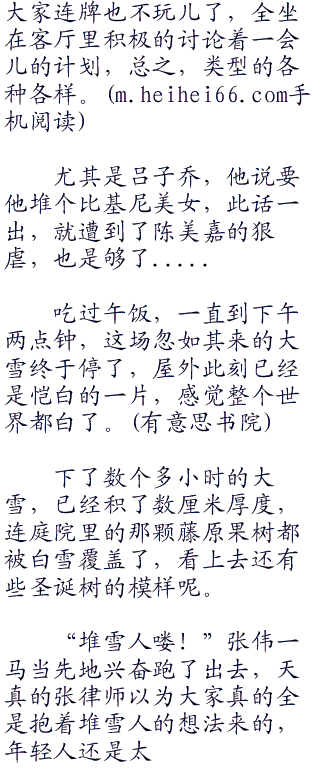 大家连牌也不玩儿了，全坐
在客厅里积极的讨论着一会
儿的计划，总之，类型的各
种各样。(m.heihei66.com手
机阅读)
尤其是吕子乔，他说要
他堆个比基尼美女，此话一
出，就遭到了陈美嘉的狠
虐，也是够了.....
吃过午饭，一直到下午
两点钟，这场忽如其来的大
雪终于停了，屋外此刻已经
是恺白的一片，感觉整个世
界都白了。(有意思书院)
下了数个多小时的大
雪，已经积了数厘米厚度，
连庭院里的那颗藤原果树都
被白雪覆盖了，看上去还有
些圣诞树的模样呢。
“堆雪人喽！”张伟一
马当先地兴奋跑了出去，天
真的张律师以为大家真的全
是抱着堆雪人的想法来的，
年轻人还是太